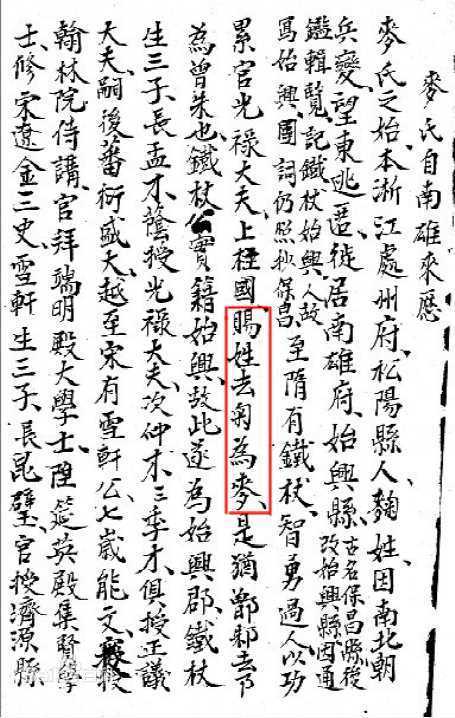 麥氏自南雄來應
麥氏之始、本浙江處州府、松陽縣人、麴姓、因南北朝
兵變、望東逃匿、徙居南雄府、始興縣、古名保昌縣後改始興縣、因通
鑑輯覽、記鐵杖始興人故寫始興、圖詞仍照抄保昌、至隋有鐵杖、智勇過人、以功
累官光祿大夫、上柱國、賜姓去匊為麥、是猶鄫邾去阝
為曾朱也、鐵杖公實籍始興、故此遂為始興郡、鐵杖
生三子、長孟才、蔭授光祿大夫、次仲才、三季才、俱授正議
大夫、嗣後蕃衍盛大、越至宋有雪軒公、七歲能文、授
翰林院侍講、官拜端明殿大學士、陞筵英殿集賢學
士、修宋遼金三史、雪軒生三子、長昆璧、官授濟源縣